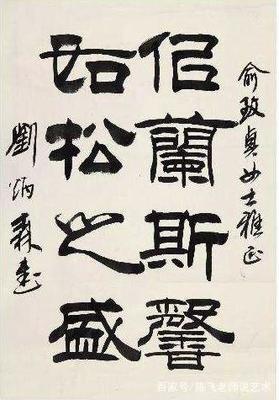 俞致貞女士雅正
佀蘭斯馨
如松之盛
劉炳森書
百家号/陈飞老师说艺术